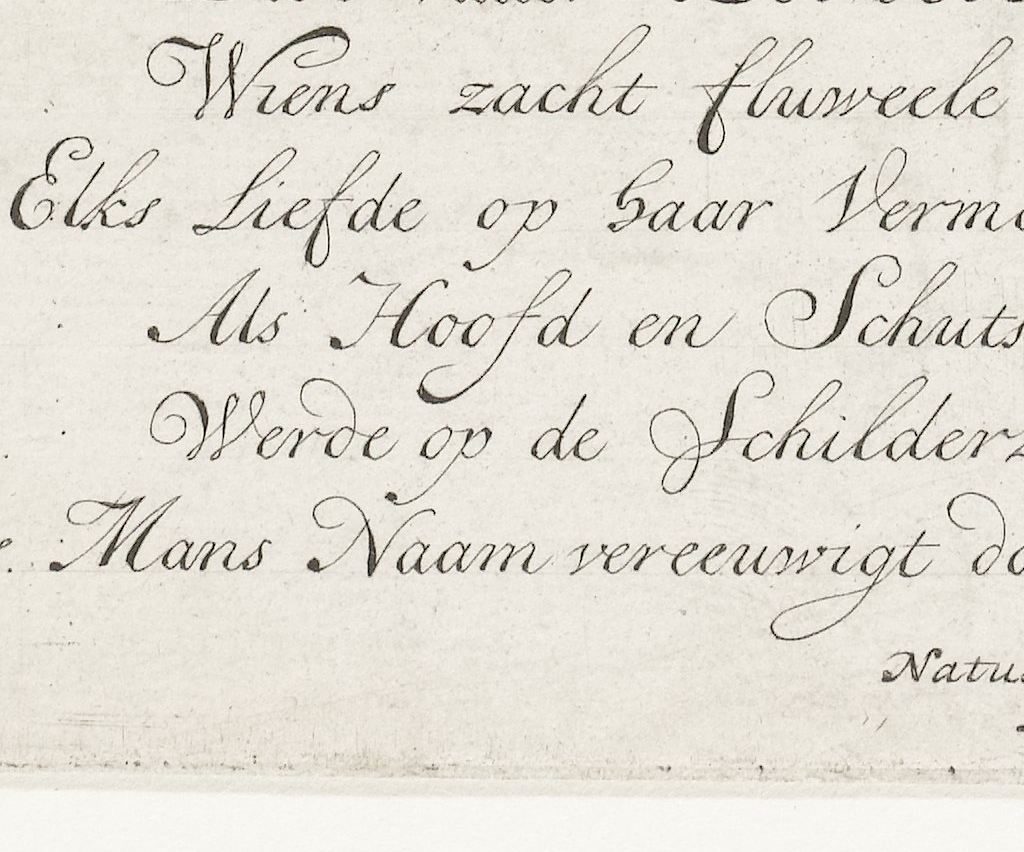 Wiens zacht fluweele
Elks Liefde op haar Verm
Als Hoofd en Schuts
Werde op de Schilderz
Mans Naam vereeuwigt do
Natus